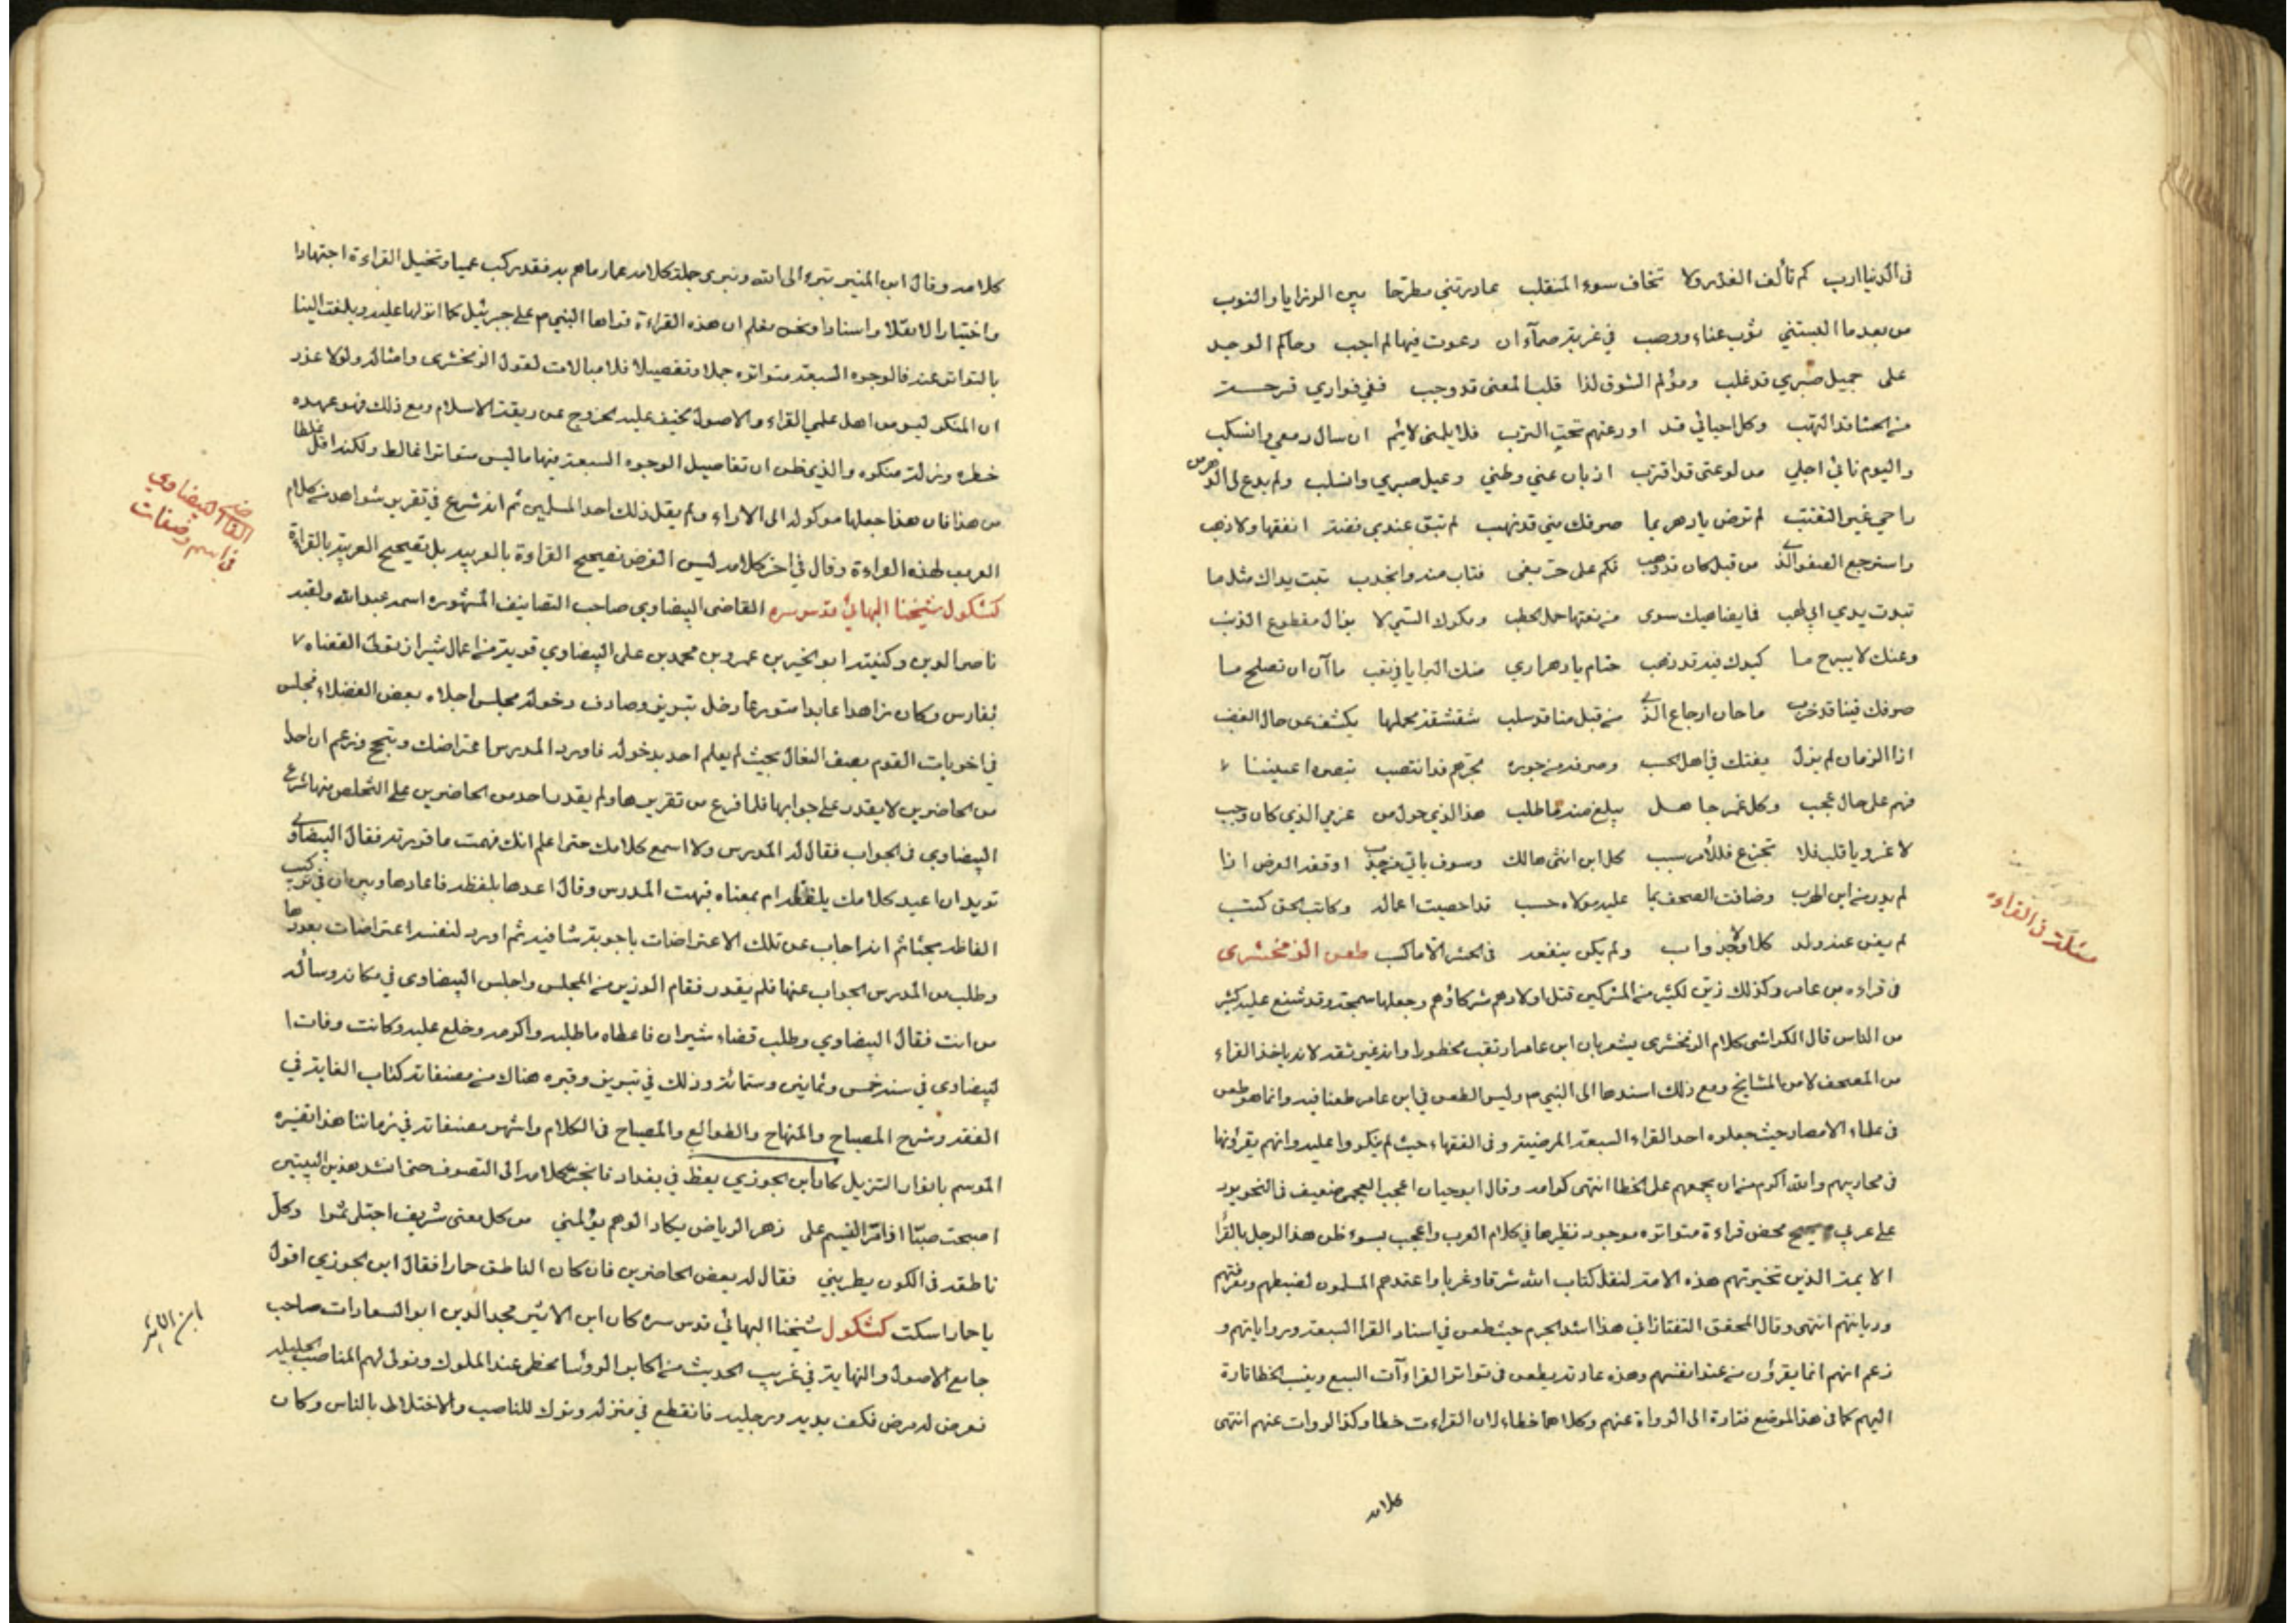 في الدنيا ارب كم تألف الغدر ولا تخاف سوء المنقلب غادرتني مطرحا بين الرزايا والنوب
من بعد ما البستني ثوب عناء ووصب في غربة صمآء ان دعوت فيها لم اجب وحاكم الوجد
على جميل صبري قد غلب ومؤلم الشوق لذا قلب المعنى قد وجب ففي فؤادي قرحت
منه الحشا قد التهب وكل احبابي قد اودعتهم تحت الترب فلا يلمني لائم ان سال دمعي وانسكب
واليوم نائي اجلي من لوعتي قد اقترب اذ بان عني وطني وعيل صبري وانسلب ولم يدع لي الدهر من
راحي غير القتب لم ترض يا دهر بما صرفك مني قد نهب لم تبق عندي فضة انفقها ولا ذهب
واسترجع الصفو الذي من قبل كان قد وهب فكم على حر بغى فتاب منه وانجدب تبت يداك مثلما
تبت يدي ابي لهب فما يضاهيك سوى من نعتها حمل الحطب ومكرك السيء لا يزال مقطوع الذنب
وعنك لا يبرح ما كيدك فيه قد ذهب حتام يا دهر اري منك البرايا في تعب ما آن ان تصلح ما
صرفك فينا قد خرب ما حان ارجاع الذي من قبل منا قد سلب شقشقة يحملها يكشف عن حال الغضب
اذا الزمان لم يزل يفتك في اهل الحسب وصرفه من جوره بحربهم قد انتصب تبصره اعيننا
فهم على حال عجب وكل غمر جاهل يبلغ منه ما طلب هذا الذي حول من عزمي الذي كان وجب
لا غرو يا قلب فلا تجزع فللأمر سبب كل ابن انثى هالك وسوف ياتي من حدب اوقفه العرض اذا
لم يدر من اين الهرب وضاقت الصحف بما عليه مولاه حسب قد احصيت اعماله وكاتب الحق كتب
لم يغن عنه ولد كلا ولا جد واب ولم يكن ينفعه في الحشر الا ما كسب طعن الزمخشري
في قراءه بن عامر وكذلك زين لكثير من المشركين قتل اولادهم شركاؤهم وجعلها سمجة وقد شنع عليه كثير
من الناس قال الكواشي كلام الزمخشري يشعر بان ابن عامر ارتقب محظورا وانه غير ثقه لانه ياخذ القراء
من المصحف لا من المشايخ ومع ذلك اسندها الى النبي م وليس الطعن في ابن عامر طعنا فيه وانما هو طعن
في علماء الامصار حيث جعلوه احد القراء السبعة المرضية وفي الفقهاء حيث لم ينكروا عليه وانهم يقرؤنها
في محاريبهم والله اكرم من ان يجمعهم على الخطا انتهى كوامه وقال ابو حيان اعجب لعجمي ضعيف في النحو يرد
على عربي صريح محض قراءة متواتره موجود نظيرها في كلام العرب واعجب بسوء ظن هذا الرجل بالقرا
الايمة الذين تخيرتهم هذه الامة لنقل كتاب الله شرقا وغربا واعتدهم المسلمون لضبطهم ومعرفتهم
وديانتهم انتهى وقال المحقق التفتازاني هذا اشد الجرم حيث طعن في اسناد القرا السبعة ورواياتهم و
زعم انهم انما يقرؤن من عند انفسهم وهذه عادته يطعن في تواتر القراءآت السبع وينسب الخطا تارة
اليهم كما في هذا الموضع فتارة الى الرواة عنهم وكلاهما خطاء لان القراءت خطا وكذا الروات عنهم انتهى
كلامه
مسئلة في القراءه
كلامه وقال ابن المنير تبرء الى الله ونبري جملة كلامه عما رماهم به فقد ركب عميا وتخيل القراءة اجتهادا
واختيارا لا نقلا واسنادا ونحن نعلم ان هذه القراءة قراها النبي م على جبرئيل كما انزلها عليه وبلغت الينا
بالتواتر عنه فالوجوه السبعة متواتره جملا وتفصيلا فلا مبالات لقول الزمخشري وامثاله ولولا عذر
ان المنكر ليس من اهل علمي القراء والاصول لخيف عليه الخروج عن ربقة الاسلام ومع ذلك فهو عهده
خطره وزلة منكره والذي ظن ان تفاصيل الوجوه السبعة فيها ما ليس متواترا غالط ولكنه اقل غلطا
من هذا فان هذا جعلها موكوله الى الاراء ولم يقل ذلك احد المسلمين ثم انه شرع في تقرير شواهد من كلام
العرب لهذه القراءة وقال في اخر كلامه ليس الغرض تصحيح القراءة بالعربيه بل تصحيح العربية بالقراءة
كشكول شيخنا البهائي قدس سره القاضي البيضاوي صاحب التصانيف المشهوره اسمه عبد الله ولقبه
ناصر الدين وكنيته ابو الخير بن عمر وبن محمد بن علي البيضاوي قرية من اعمال شيراز تولى القضاه
بفارس وكان زاهدا عابدا متورعا دخل تبريز وصادف دخوله مجلس اجلاء بعض الفضلاء فجلس
في اخريات القوم بصف النعال بحيث لم يعلم احد بدخوله فاورد المدرس اعتراضات وتبجح وزعم ان احدا
من الحاضرين لا يقدر على جوابها فلما فرغ من تقريرها ولم يقدر احد من الحاضرين على التخلص منها شرع
البيضاوي في الجواب فقال له المدرس ولا اسمع كلامك حتى اعلم انك فهمت ما قررته فقال البيضاوي
تريد ان اعيد كلامك بلفظه ام بمعناه فبهت المدرس وقال اعدها بلفظه فاعادها وبين ان في تركيب
الفاظه بحثا ثم انه اجاب عن تلك الاعتراضات باجوبة شافيه ثم اورد لنفسه اعتراضات بعددها
وطلب من المدرس الجواب عنها فلم يقدر فقام الوزير من المجلس واجلس البيضاوي في مكانه وسأله
من انت فقال البيضاوي وطلب قضاء شيراز فاعطاه ما طلبه واكرمه وخلع عليه وكانت وفات ا
لبيضاوي في سنه خمس وثمانين وستمائة وذلك في تبريز وقبره هناك من مصنفاته كتاب الغاية في
الفقه وشرح المصباح والمنهاج والطوالع والمصباح في الكلام واشهر مصنفاته في زماننا هذا تفسيره
الموسم بانوار التنزيل كان ابن الجوزي يعظ في بغداد فانجر كلامه الى التصوف حتى انشد هذين البيتين
اصبحت صبا اذا مر النسيم على زهر الرياض يكاد الوهم يؤلمني من كل معنى شريف اجتلى ثموا وكل
ناطقه في الكون يطربني فقال له بعض الحاضرين فان كان الناطق حمارا فقال ابن الجوزي اقول
يا حمار اسكت كشكول شيخنا البهائي قدس سره كان ابن الاثير مجد الدين ابو السعادات صاحب
جامع الاصول والنهاية في غريب الحديث من اكابر الرؤسا محظى عند الملوك وتولى لهم المناصب الجليله
فعرض له مرض فكف يديه ورجليه فانقطع في منزله وترك المناصب والاختلاط بالناس وكان
القاضي البيضاوي
في اسم وصفات
ابن الاثير